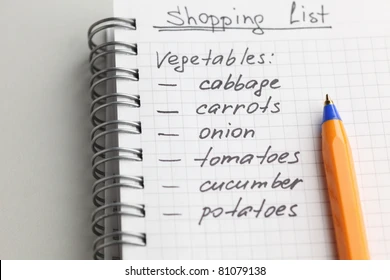 Shopping List
Vegetables:
— cabbage
— carrots
— onion
— tomatoes
— cucumber
— potatoes
shutterstock.com · 81079138